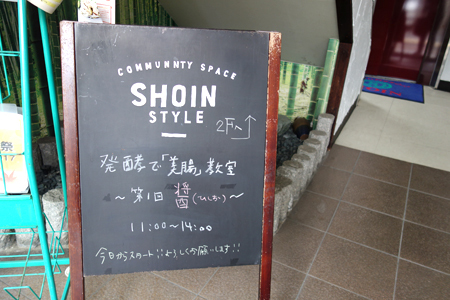 COMMUNNTY SPACE
SHOIN
STYLE
2Fへ
発酵で「美腸」教室
〜第1回 醤(ひしお)〜
11:00〜14:00
今日からスタート!!よろしくお願いします!!